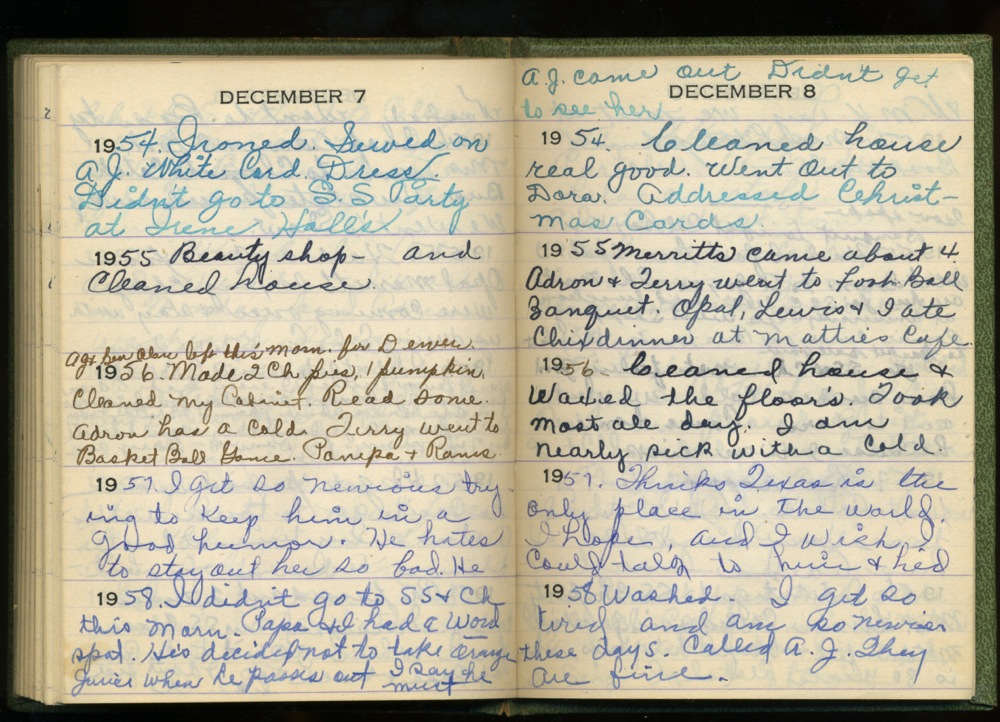 DECEMBER 7
1954. Ironed. Sewed on
A.J. White Cord. Dress.
Didn't go to S.S Party
at Irene Hall's
1955 Beauty shop - and
Cleaned house.
A.J. & left this morn. for Denver.
1956. Made 2 Ch pies, 1 pumpkin.
Cleaned my Cabinet. Read some.
Adron has a Cold. Terry went to
Basket Ball Game. Pampa &
1957. I get so nervious try
ing to Keep him in a
good humor. He hates
to stay out her so bad. He
1958. I didn't go to SS & Ch
this Morn. Papa & I had a Word
spat. He's decided not to take Orange
Juice when he passes out I say he
must
A.J. came out Didn't get
to see her
DECEMBER 8
1954. Cleaned house
real good. Went Out to
Dora. Addressed Cehrist-
mas Cards.
1955 Merritts came about 4
Adron & Terry went to Foot Ball
Banquet. Opal, Lewis & I ate
Chixdinner at Matties Cafe.
1956 Cleaned house &
Waxed the floors. Took
most all day. I am
nearly sick with a Cold.
1957. Thinks Texas is the
only place in the world.
I hope, and I wish I
Could talk to him & he'd
1958 Washed. I get so
tired and am so nervious
these days. Called A.J. They
are fine.